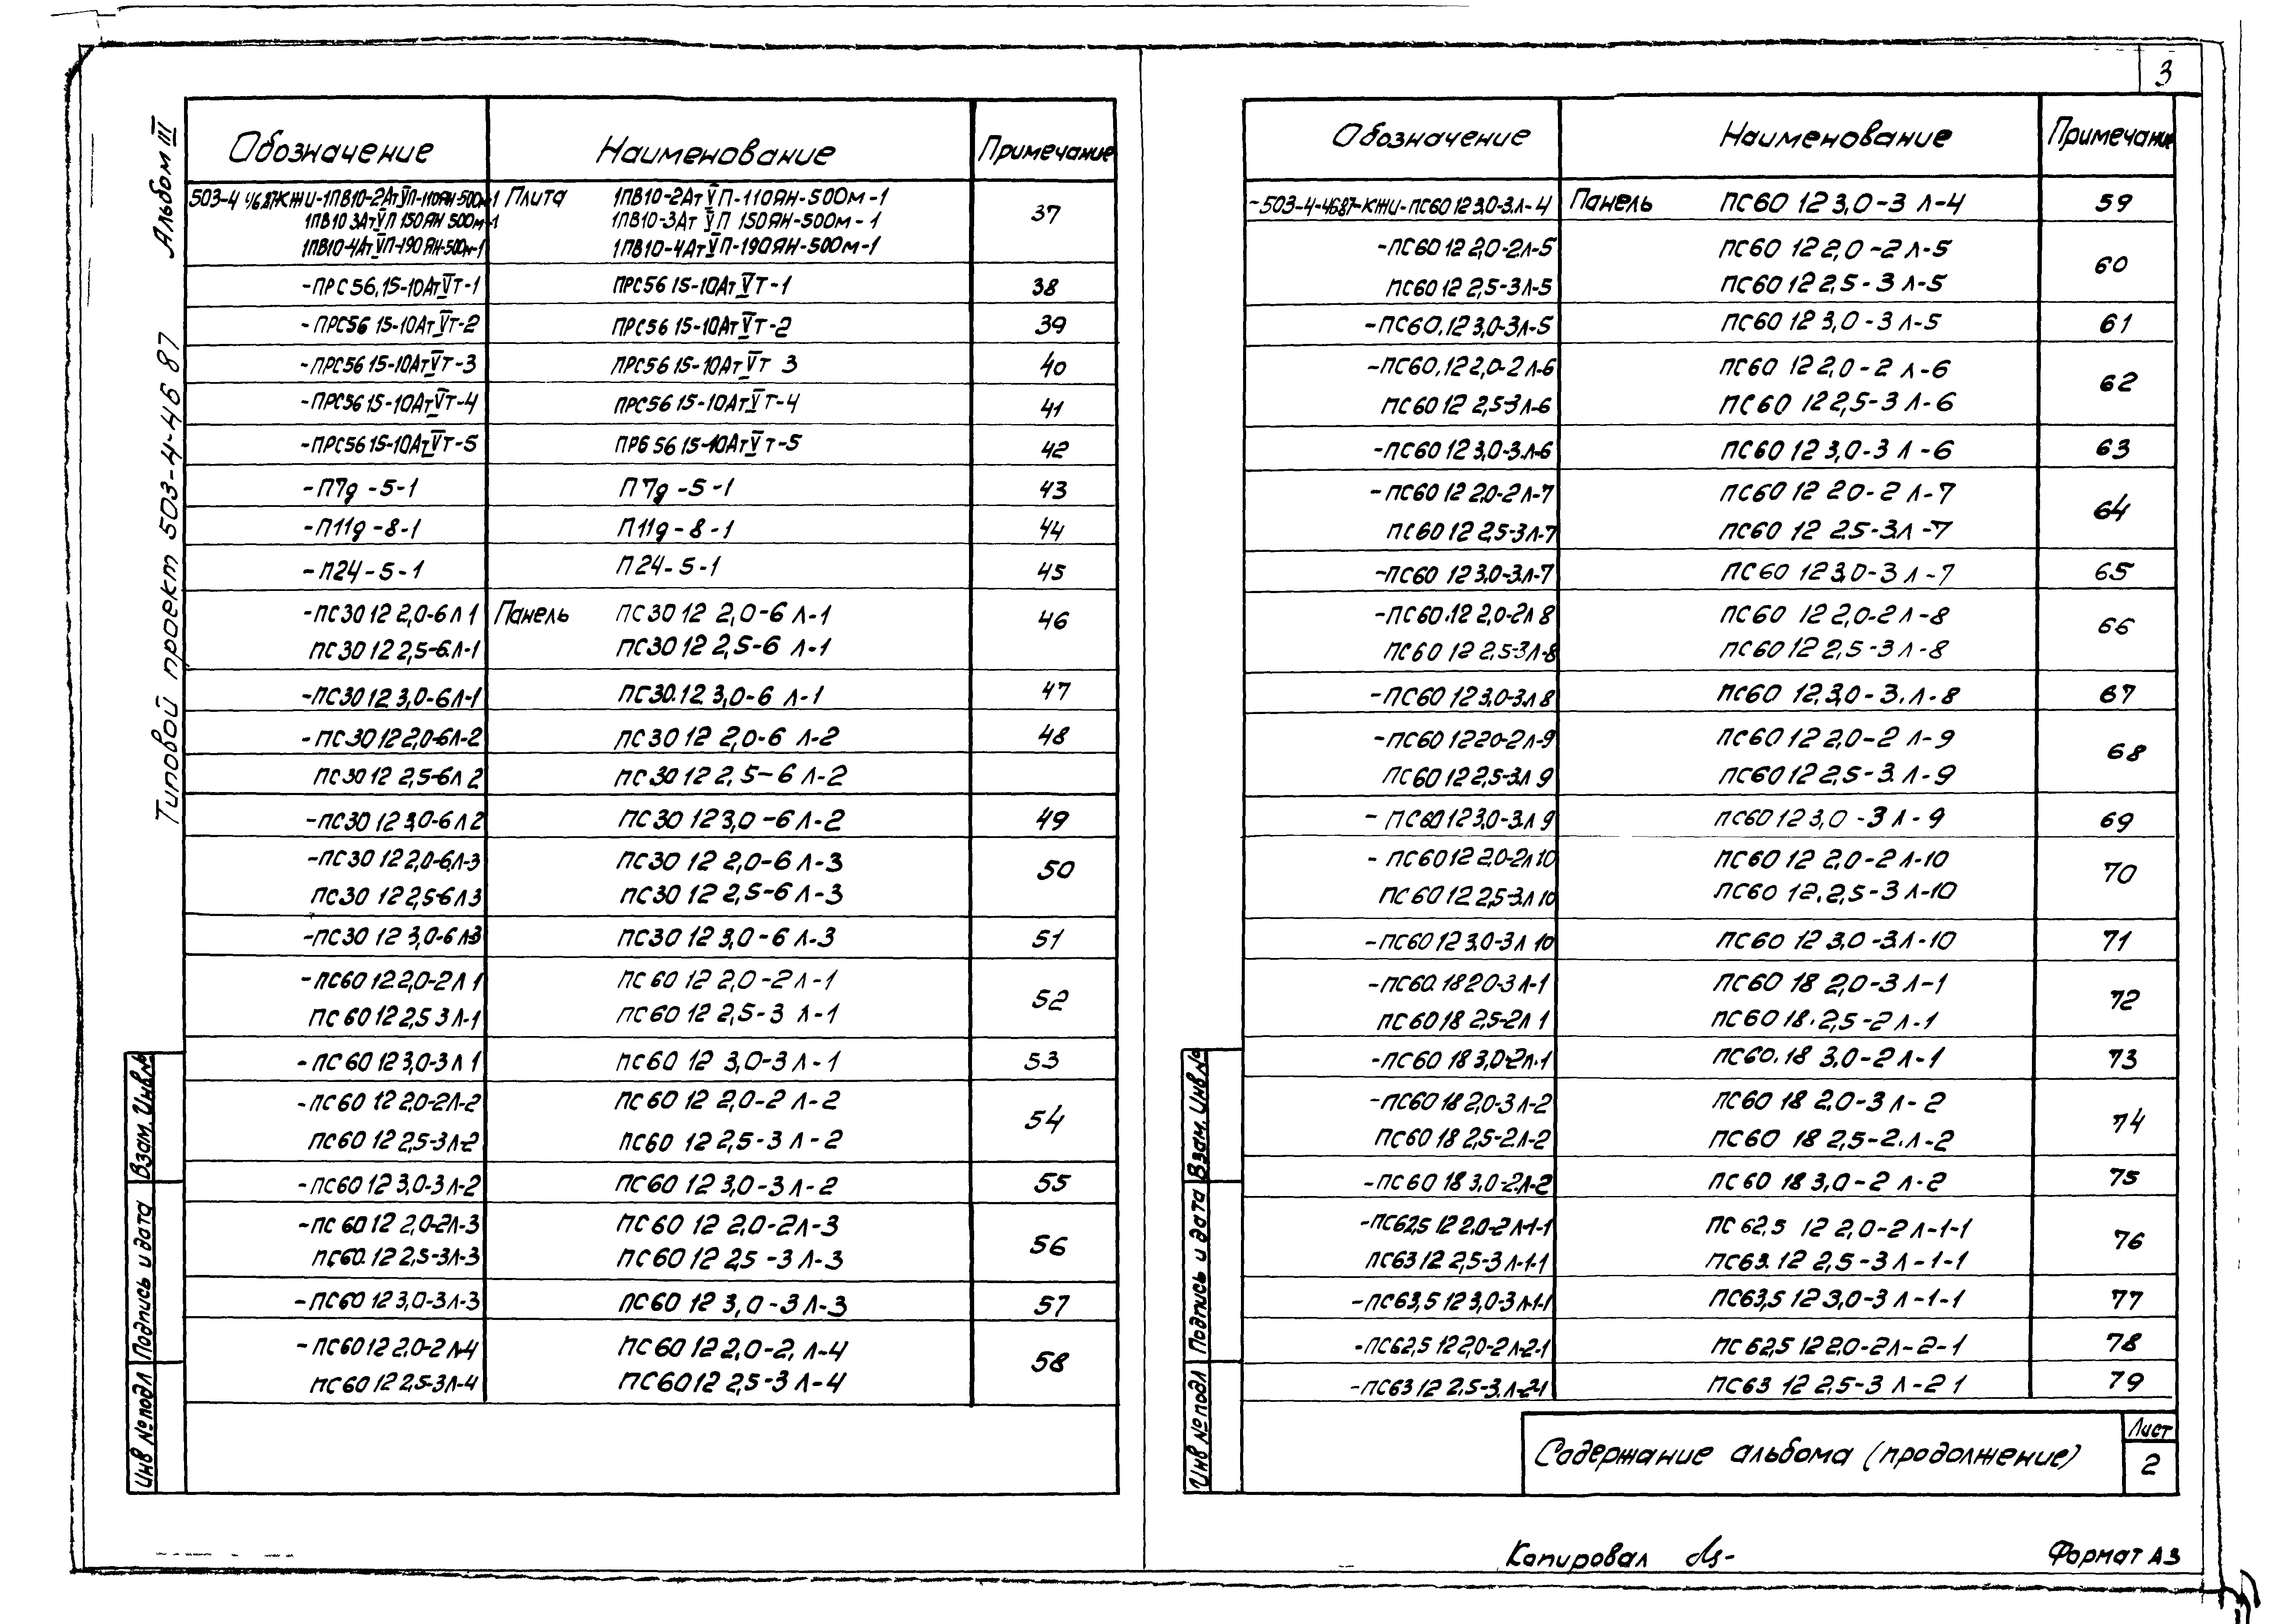 3
Альбом III
Типовой проект 503-4-46 87
Обозначение Наименование Примечание
503-4 46.87КЖИ-1ПВ10-2АтVП-110ЯН-500м-1 Плита 1ПВ10-2АтVП-110ЯН-500м-1 37
1ПВ10 3АтVП 150ЯН 500м-1 1ПВ10-3Ат VП 150ЯН-500м-1
1ПВ10-4АтVП-190ЯН-500м-1 1ПВ10-4АтVП-190ЯН-500м-1
-ПРС56.15-10АтVТ-1 ПРС56 15-10АтVТ-1 38
-ПРС56 15-10АтVТ-2 ПРС56 15-10АтVТ-2 39
-ПРС56 15-10АтVТ-3 ПРС56 15-10АтVТ 3 40
-ПРС56 15-10АтVТ-4 ПРС56 15-10АтVТ-4 41
-ПРС56 15-10АтVТ-5 ПР6 56 15-10АтVТ-5 42
-П7д -5-1 П 7д -5-1 43
-П11д -8-1 П 11д-8-1 44
-П24-5-1 П 24-5-1 45
-ПС30 12 2,0-6 Л 1 Панель ПС30 12 2,0-6 Л-1 46
ПС30 12 2,5-6.Л-1 ПС30 12 2,5-6 Л-1
-ПС30 12 3,0-6Л-1 ПС30.12 3,0-6 Л-1 47
-ПС30 12 2,0-6Л-2 ПС30 12 2,0-6 Л-2 48
ПС30 12 2,5-6Л 2 ПС30 12 2,5-6 Л-2
-ПС30 12 3,0-6 Л 2 ПС30 12 3,0-6 Л-2 49
-ПС30 12 2,0-6.Л-3 ПС30 12 2,0-6 Л-3 50
ПС30 12 2,5-6Л3 ПС30 12 2,5-6 Л-3
-ПС30 12 3,0-6 Л-3 ПС30 12 3,0-6 Л-3 51
-ПС60 12 2,0-2Л 1 ПС60 12 2,0-2Л-1 52
ПС60 12 2,5 3 Л-1 ПС60 12 2,5-3 Л-1
-ПС60 12 3,0-3 Л 1 ПС60 12 3,0-3 Л-1 53
-ПС60 12 2,0-2Л-2 ПС60 12 2,0-2 Л-2 54
ПС60 12 2,5-3Л-2 ПС60 12 2,5-3 Л-2
-ПС60 12 3,0-3 Л-2 ПС60 12 3,0-3 Л-2 55
-ПС60 12 2,0-2Л-3 ПС60 12 2,0-2Л-3 56
ПС60.12 2,5-3Л-3 ПС60 12 2,5-3 Л-3
-ПС60 12 3,0-3Л-3 ПС60 12 3,0-3Л-3 57
-ПС60 12 2,0-2 Л-4 ПС60 12 2,0-2, Л-4 58
ПС60 12 2,5-3Л-4 ПС60 12 2,5-3 Л-4
Взам. Инв№
Подпись и дата
Инв № подл
Обозначение Наименование Примечание
-503-4-4687-КЖИ-ПС60 12 3,0-3.Л-4 Панель ПС60 12 3,0-3 Л-4 59
-ПС60 12 2,0-2Л-5 ПС60 12 2,0-2 Л-5 60
ПС60 12 2,5-3Л-5 ПС60 12 2,5-3 Л-5
-ПС60.12 3,0-3Л-5 ПС60 12 3,0-3 Л-5 61
-ПС60.12 2,0-2 Л-6 ПС60 12 2,0-2 Л-6 62
ПС60 12 2,5-3Л-6 ПС60 12 2,5-3 Л-6
-ПС60 12 3,0-3.Л-6 ПС60 12 3,0-3 Л-6 63
-ПС60 12 2,0-2Л-7 ПС60 12 2 0-2 Л-7 64
ПС60 12 2,5-3Л-7 ПС60 12 2.5-3Л-7
-ПС60 12 3,0-3.Л-7 ПС60 12 3,0-3 Л-7 65
-ПС60.12 2,0-2Л 8 ПС60 12 2,0-2 Л-8 66
ПС60 12 2,5-3Л-8 ПС60 12 2,5-3 Л-8
-ПС60 12 3,0-3.Л 8 ПС60 12,3,0-3.Л-8 67
-ПС60 12 2 0-2Л-9 ПС60 12 2,0-2 Л-9 68
ПС60 12 2,5-3Л 9 ПС60 12 2,5-3. Л-9
- ПС60 12 3,0-3Л 9 ПС60 12 3,0-3 Л-9 69
- ПС60 12 2,0-2Л 10 ПС60 12 2,0-2 Л-10 70
ПС60 12 2,5-3.Л 10 ПС60 12.2,5-3 Л-10
-ПС60 12 3,0-3Л 10 ПС60 12 3,0-3Л-10 71
-ПС60.18 2,0-3 Л-1 ПС60 18 2,0-3 Л-1 72
ПС60 18 2,5-2Л 1 ПС60 18.2,5-2 Л-1
-ПС60 18 3,0-2Л-1 ПС60.18 3,0-2 Л-1 73
-ПС60 18 2,0-3 Л-2 ПС60 18 2,0-3 Л-2 74
ПС60 18 2,5-2Л-2 ПС60 18 2,5-2.Л-2
-ПС60 18 3,0-2.Л-2 ПС60 18 3,0-2 Л-2 75
-ПС62,5 12 2,0-2 Л-1-1 ПС62,5 12 2,0-2 Л-1-1 76
ПС63 12 2,5-3 Л-1-1 ПС63.12 2,5-3 Л-1-1
-ПС63,5 12 3,0-3 Л-1-1 ПС63,5 12 3,0-3 Л-1-1 77
-ПС62,5 12 2,0-2 Л-2-1 ПС62,5 12 2,0-2Л-2-1 78
-ПС63 12 2.5-3.Л-2-1 ПС63 12 2,5-3 Л-2 1 79
Взам. Инв№
Подпись и дата
Инв № подл
Содержание альбома (продолжение)
Лист
2
Копировал
Формат А3